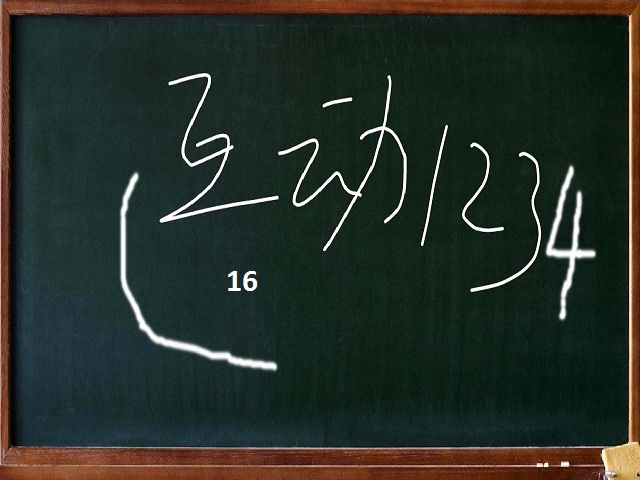 互动1234
16